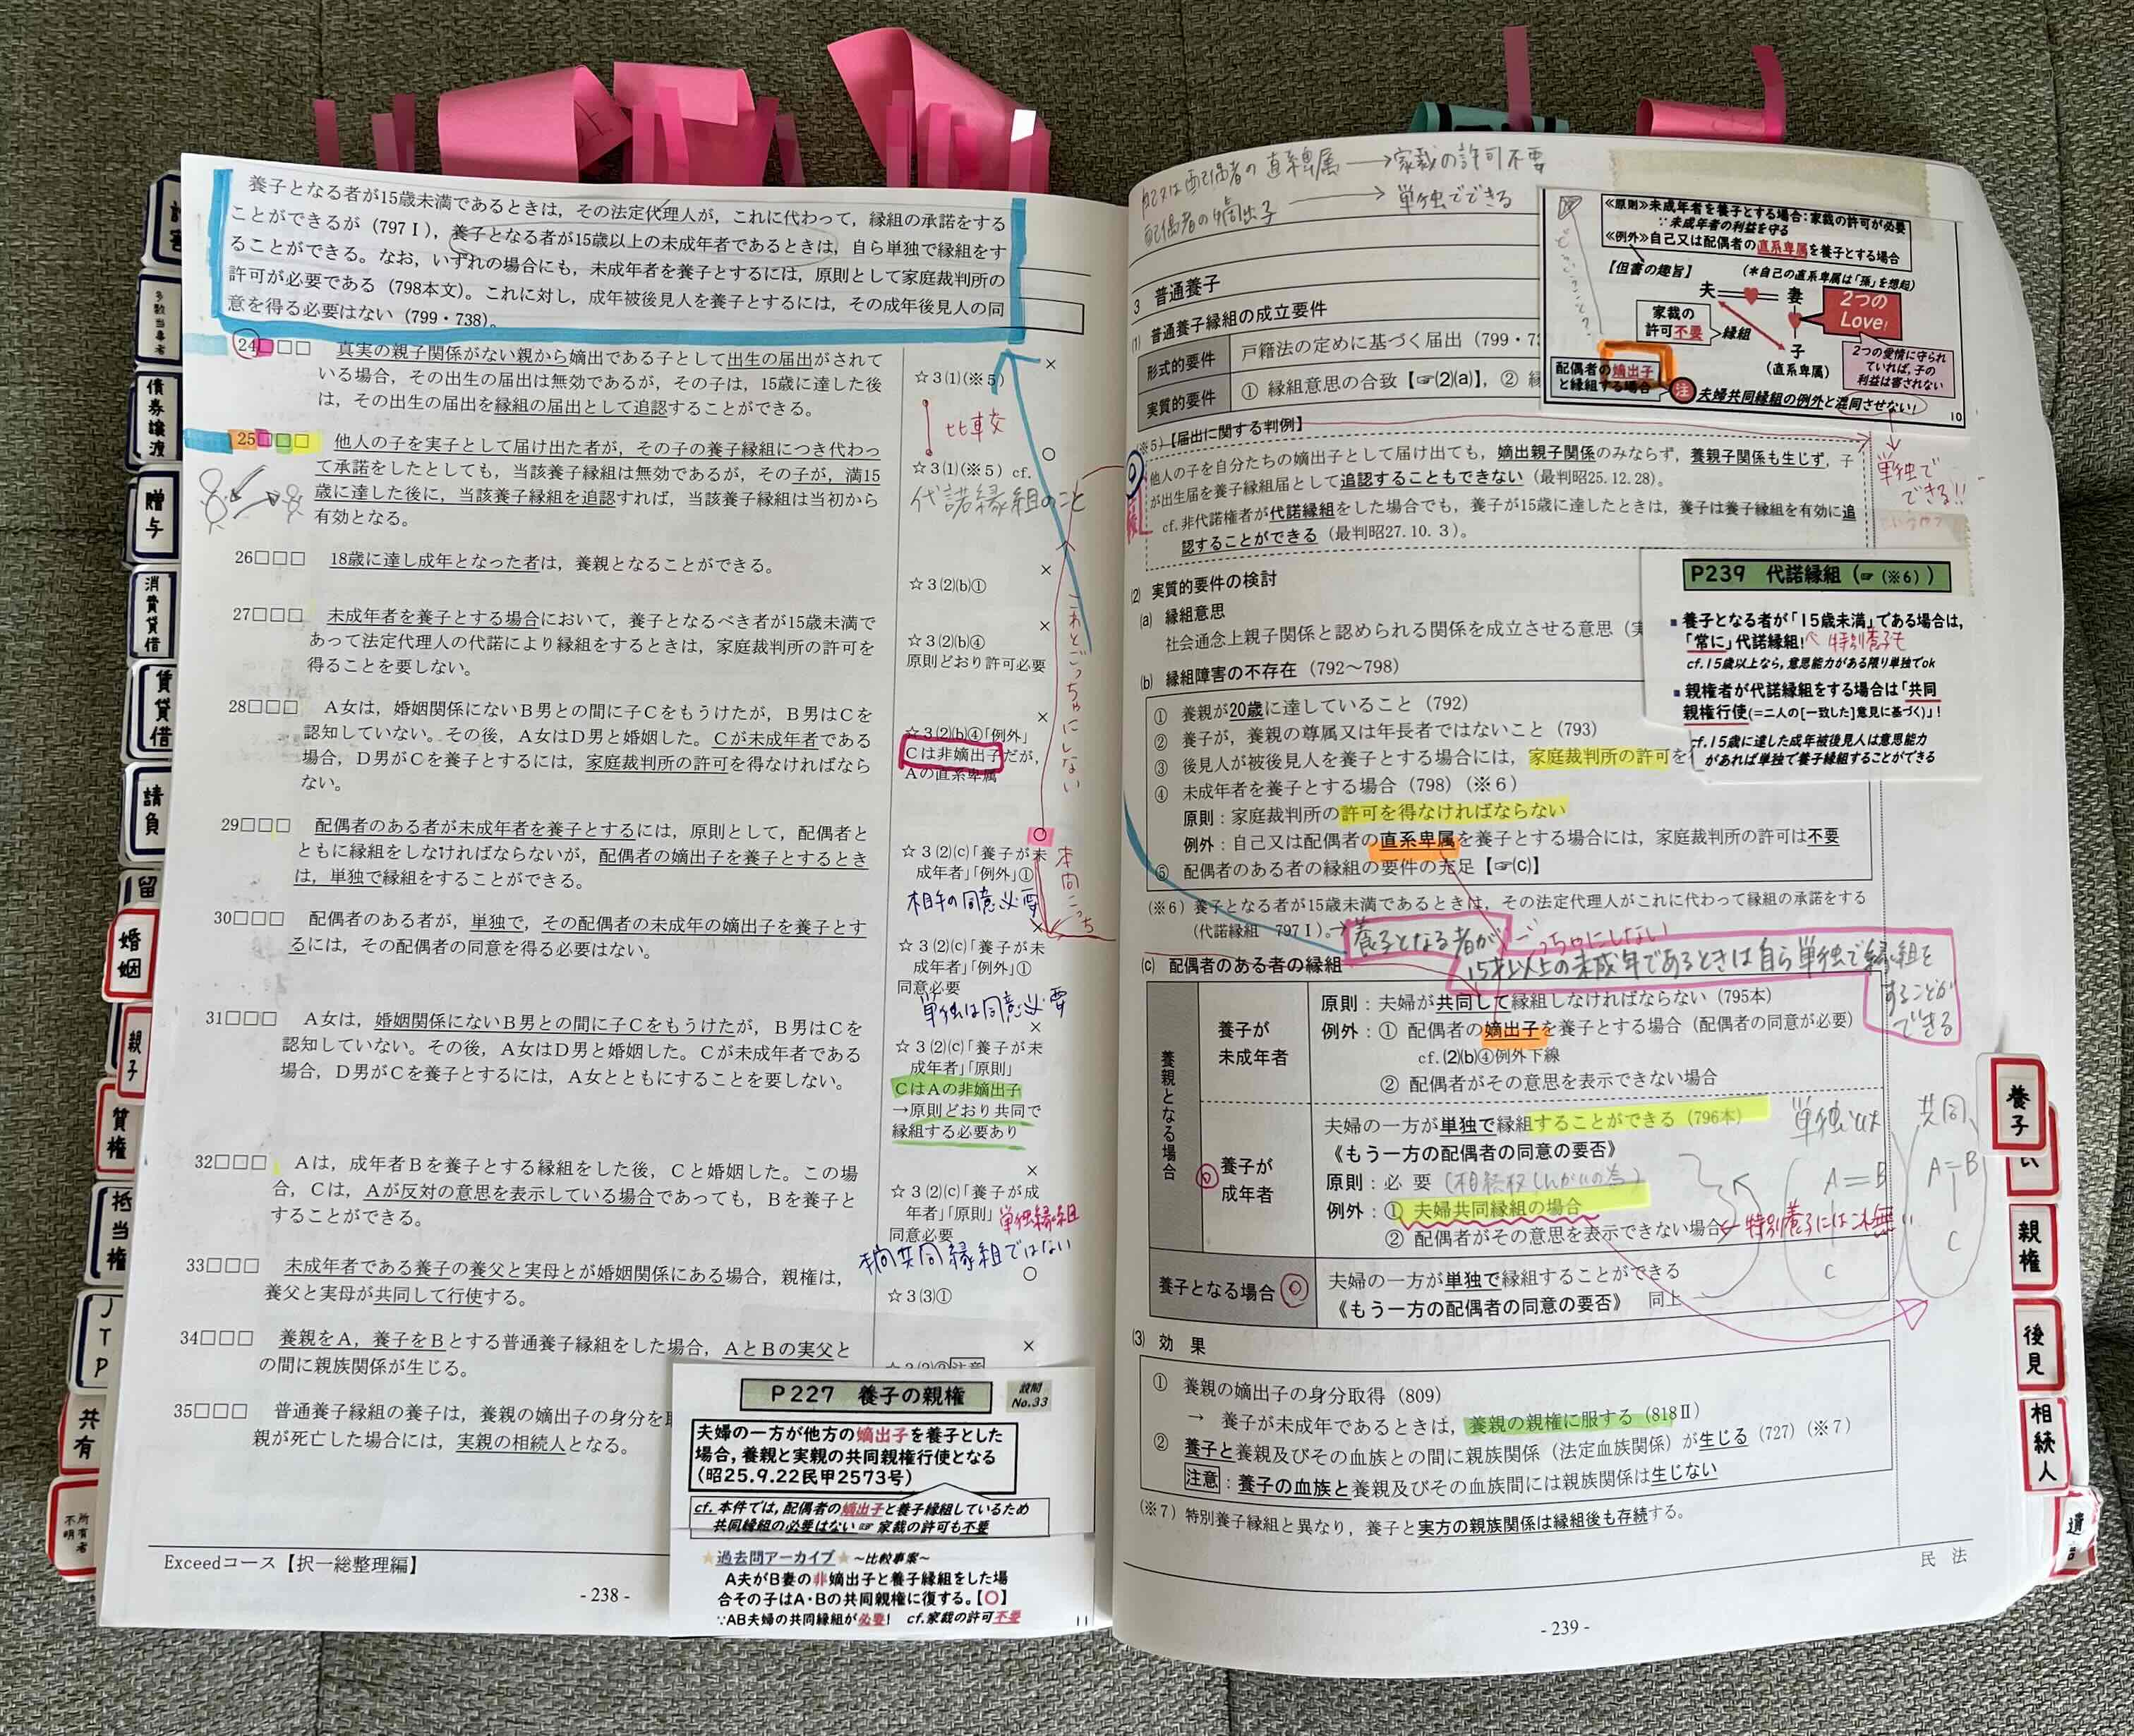 養子となる者が15歳未満であるときは，その法定代理人が，これに代わって，縁組の承諾をする
ことができるが（797Ⅰ），養子となる者が15歳以上の未成年者であるときは，自ら単独で縁組をす
ることができる。なお，いずれの場合にも，未成年者を養子とするには，原則として家庭裁判所の
許可が必要である（798本文）。これに対し，成年被後見人を養子とするには，その成年後見人の同
意を得る必要はない（799・738）。
24□□□ 真実の親子関係がない親から嫡出である子として出生の届出がされて
いる場合，その出生の届出は無効であるが，その子は，15歳に達した後
は，その出生の届出を縁組の届出として追認することができる。
×
☆3(1)(※5)
比較
25□□□ 他人の子を実子として届け出た者が，その子の養子縁組につき代わっ
て承諾をしたとしても，当該養子縁組は無効であるが，その子が，満15
歳に達した後に，当該養子縁組を追認すれば，当該養子縁組は当初から
有効となる。
○
☆3(1)(※5) cf.
代諾縁組のこと
26□□□ 18歳に達し成年となった者は，養親となることができる。
×
☆3(2)(b)①
27□□□ 未成年者を養子とする場合において，養子となるべき者が15歳未満で
あって法定代理人の代諾により縁組をするときは，家庭裁判所の許可を
得ることを要しない。
×
☆3(2)(b)④
原則どおり許可必要
これとごっちゃにしない
28□□□ A女は，婚姻関係にないB男との間に子Cをもうけたが，B男はCを
認知していない。その後，A女はD男と婚姻した。Cが未成年者である
場合，D男がCを養子とするには，家庭裁判所の許可を得なければなら
ない。
×
☆3(2)(b)④「例外」
Cは非嫡出子だが，
Aの直系卑属
29□□□ 配偶者のある者が未成年者を養子とするには，原則として，配偶者と
ともに縁組をしなければならないが，配偶者の嫡出子を養子とするとき
は，単独で縁組をすることができる。
○
☆3(2)(c)「養子が未
成年者」「例外」①
相手の同意必要
本問こっち
30□□□ 配偶者のある者が，単独で，その配偶者の未成年の嫡出子を養子とす
るには，その配偶者の同意を得る必要はない。
×
☆3(2)(c)「養子が未
成年者」「例外」①
同意必要
単独は同意必要
31□□□ A女は，婚姻関係にないB男との間に子Cをもうけたが，B男はCを
認知していない。その後，A女はD男と婚姻した。Cが未成年者である
場合，D男がCを養子とするには，A女とともにすることを要しない。
×
☆3(2)(c)「養子が未
成年者」「原則」
CはAの非嫡出子
→原則どおり共同で
縁組する必要あり
32□□□ Aは，成年者Bを養子とする縁組をした後，Cと婚姻した。この場
合，Cは，Aが反対の意思を表示している場合であっても，Bを養子と
することができる。
×
☆3(2)(c)「養子が成
年者」「原則」単独縁組
同意必要
本問共同縁組ではない
33□□□ 未成年者である養子の養父と実母とが婚姻関係にある場合，親権は，
養父と実母が共同して行使する。
○
☆3(3)①
34□□□ 養親をA，養子をBとする普通養子縁組をした場合，AとBの実父と
の間に親族関係が生じる。
×
35□□□ 普通養子縁組の養子は，養親の嫡出子の身分を
親が死亡した場合には，実親の相続人となる。
P227 養子の親権
設問
No.33
夫婦の一方が他方の嫡出子を養子とした
場合，養親と実親の共同親権行使となる
（昭25.9.22民甲2573号）
cf.本件では，配偶者の嫡出子と養子縁組しているため
共同縁組の必要はない☞家裁の許可も不要
★過去問アーカイブ★～比較事案～
A夫がB妻の非嫡出子と養子縁組をした場
合その子はA・Bの共同親権に復する。【○】
∵AB夫婦の共同縁組が必要！ cf.家裁の許可不要
11
Exceedコース【択一総整理編】
- 238 -
多数当事者
債券譲渡
贈与
消費貸借
賃貸借
請負
留
婚姻
親子
質権
抵当権
共有
所有者不明
配偶者の直系卑属→家裁の許可不要
配偶者の嫡出子→単独でできる
≪原則≫未成年者を養子とする場合：家裁の許可が必要
∵未成年者の利益を守る
≪例外≫自己又は配偶者の直系卑属を養子とする場合
【但書の趣旨】
（＊自己の直系卑属は「孫」を想起）
夫 妻
2つの
Love!
家裁の
許可不要
縁組
子
（直系卑属）
2つの愛情に守られ
ていれば，子の
利益は害されない
配偶者の嫡出子
と縁組する場合
注 夫婦共同縁組の例外と混同させない！
10
単独で
できる!!
3 普通養子
(1) 普通養子縁組の成立要件
形式的要件 戸籍法の定めに基づく届出（799・73
実質的要件 ① 縁組意思の合致【☞(2)(a)】，② 縁
(※5)【届出に関する判例】
他人の子を自分たちの嫡出子として届け出ても，嫡出親子関係のみならず，養親子関係も生じず，子
が出生届を養子縁組届として追認することもできない（最判昭25.12.28）。
cf.非代諾権者が代諾縁組をした場合でも，養子が15歳に達したときは，養子は養子縁組を有効に追
認することができる（最判昭27.10.3）。
P239 代諾縁組（☞（※6））
■養子となる者が「15歳未満」である場合は，
「常に」代諾縁組！ 特別養子も
cf.15歳以上なら，意思能力がある限り単独でok
■親権者が代諾縁組をする場合は「共同
親権行使(＝二人の[一致した]意見に基づく)」！
cf.15歳に達した成年被後見人は意思能力
があれば単独で養子縁組することができる
(2) 実質的要件の検討
(a) 縁組意思
社会通念上親子関係と認められる関係を成立させる意思（実
(b) 縁組障害の不存在（792～798）
① 養親が20歳に達していること（792）
② 養子が，養親の尊属又は年長者ではないこと（793）
③ 後見人が被後見人を養子とする場合には，家庭裁判所の許可を
④ 未成年者を養子とする場合（798）（※6）
原則：家庭裁判所の許可を得なければならない
例外：自己又は配偶者の直系卑属を養子とする場合には，家庭裁判所の許可は不要
⑤ 配偶者のある者の縁組の要件の充足【☞(c)】
(※6) 養子となる者が15歳未満であるときは，その法定代理人がこれに代わって縁組の承諾をする
（代諾縁組 797Ⅰ）。→
養子となる者が
ごっちゃにしない
15才以上の未成年であるときは自ら単独で縁組を
することが
できる
(c) 配偶者のある者の縁組
養親となる場合
養子が
未成年者
原則：夫婦が共同して縁組しなければならない（795本）
例外：① 配偶者の嫡出子を養子とする場合（配偶者の同意が必要）
cf.(2)(b)④例外下線
② 配偶者がその意思を表示できない場合
養子が
成年者
夫婦の一方が単独で縁組することができる（796本）
《もう一方の配偶者の同意の要否》
原則：必 要
例外：① 夫婦共同縁組の場合
② 配偶者がその意思を表示できない場合
特別養子にはこれ無い
単独とは
A＝B
C
共同
A＝B
C
養子となる場合
夫婦の一方が単独で縁組することができる
《もう一方の配偶者の同意の要否》 同上
(3) 効 果
① 養親の嫡出子の身分取得（809）
→ 養子が未成年であるときは，養親の親権に服する（818Ⅱ）
② 養子と養親及びその血族との間に親族関係（法定血族関係）が生じる（727）（※7）
注意：養子の血族と養親及びその血族間には親族関係は生じない
(※7) 特別養子縁組と異なり，養子と実方の親族関係は縁組後も存続する。
民 法
- 239 -
養子
親権
後見
相続人